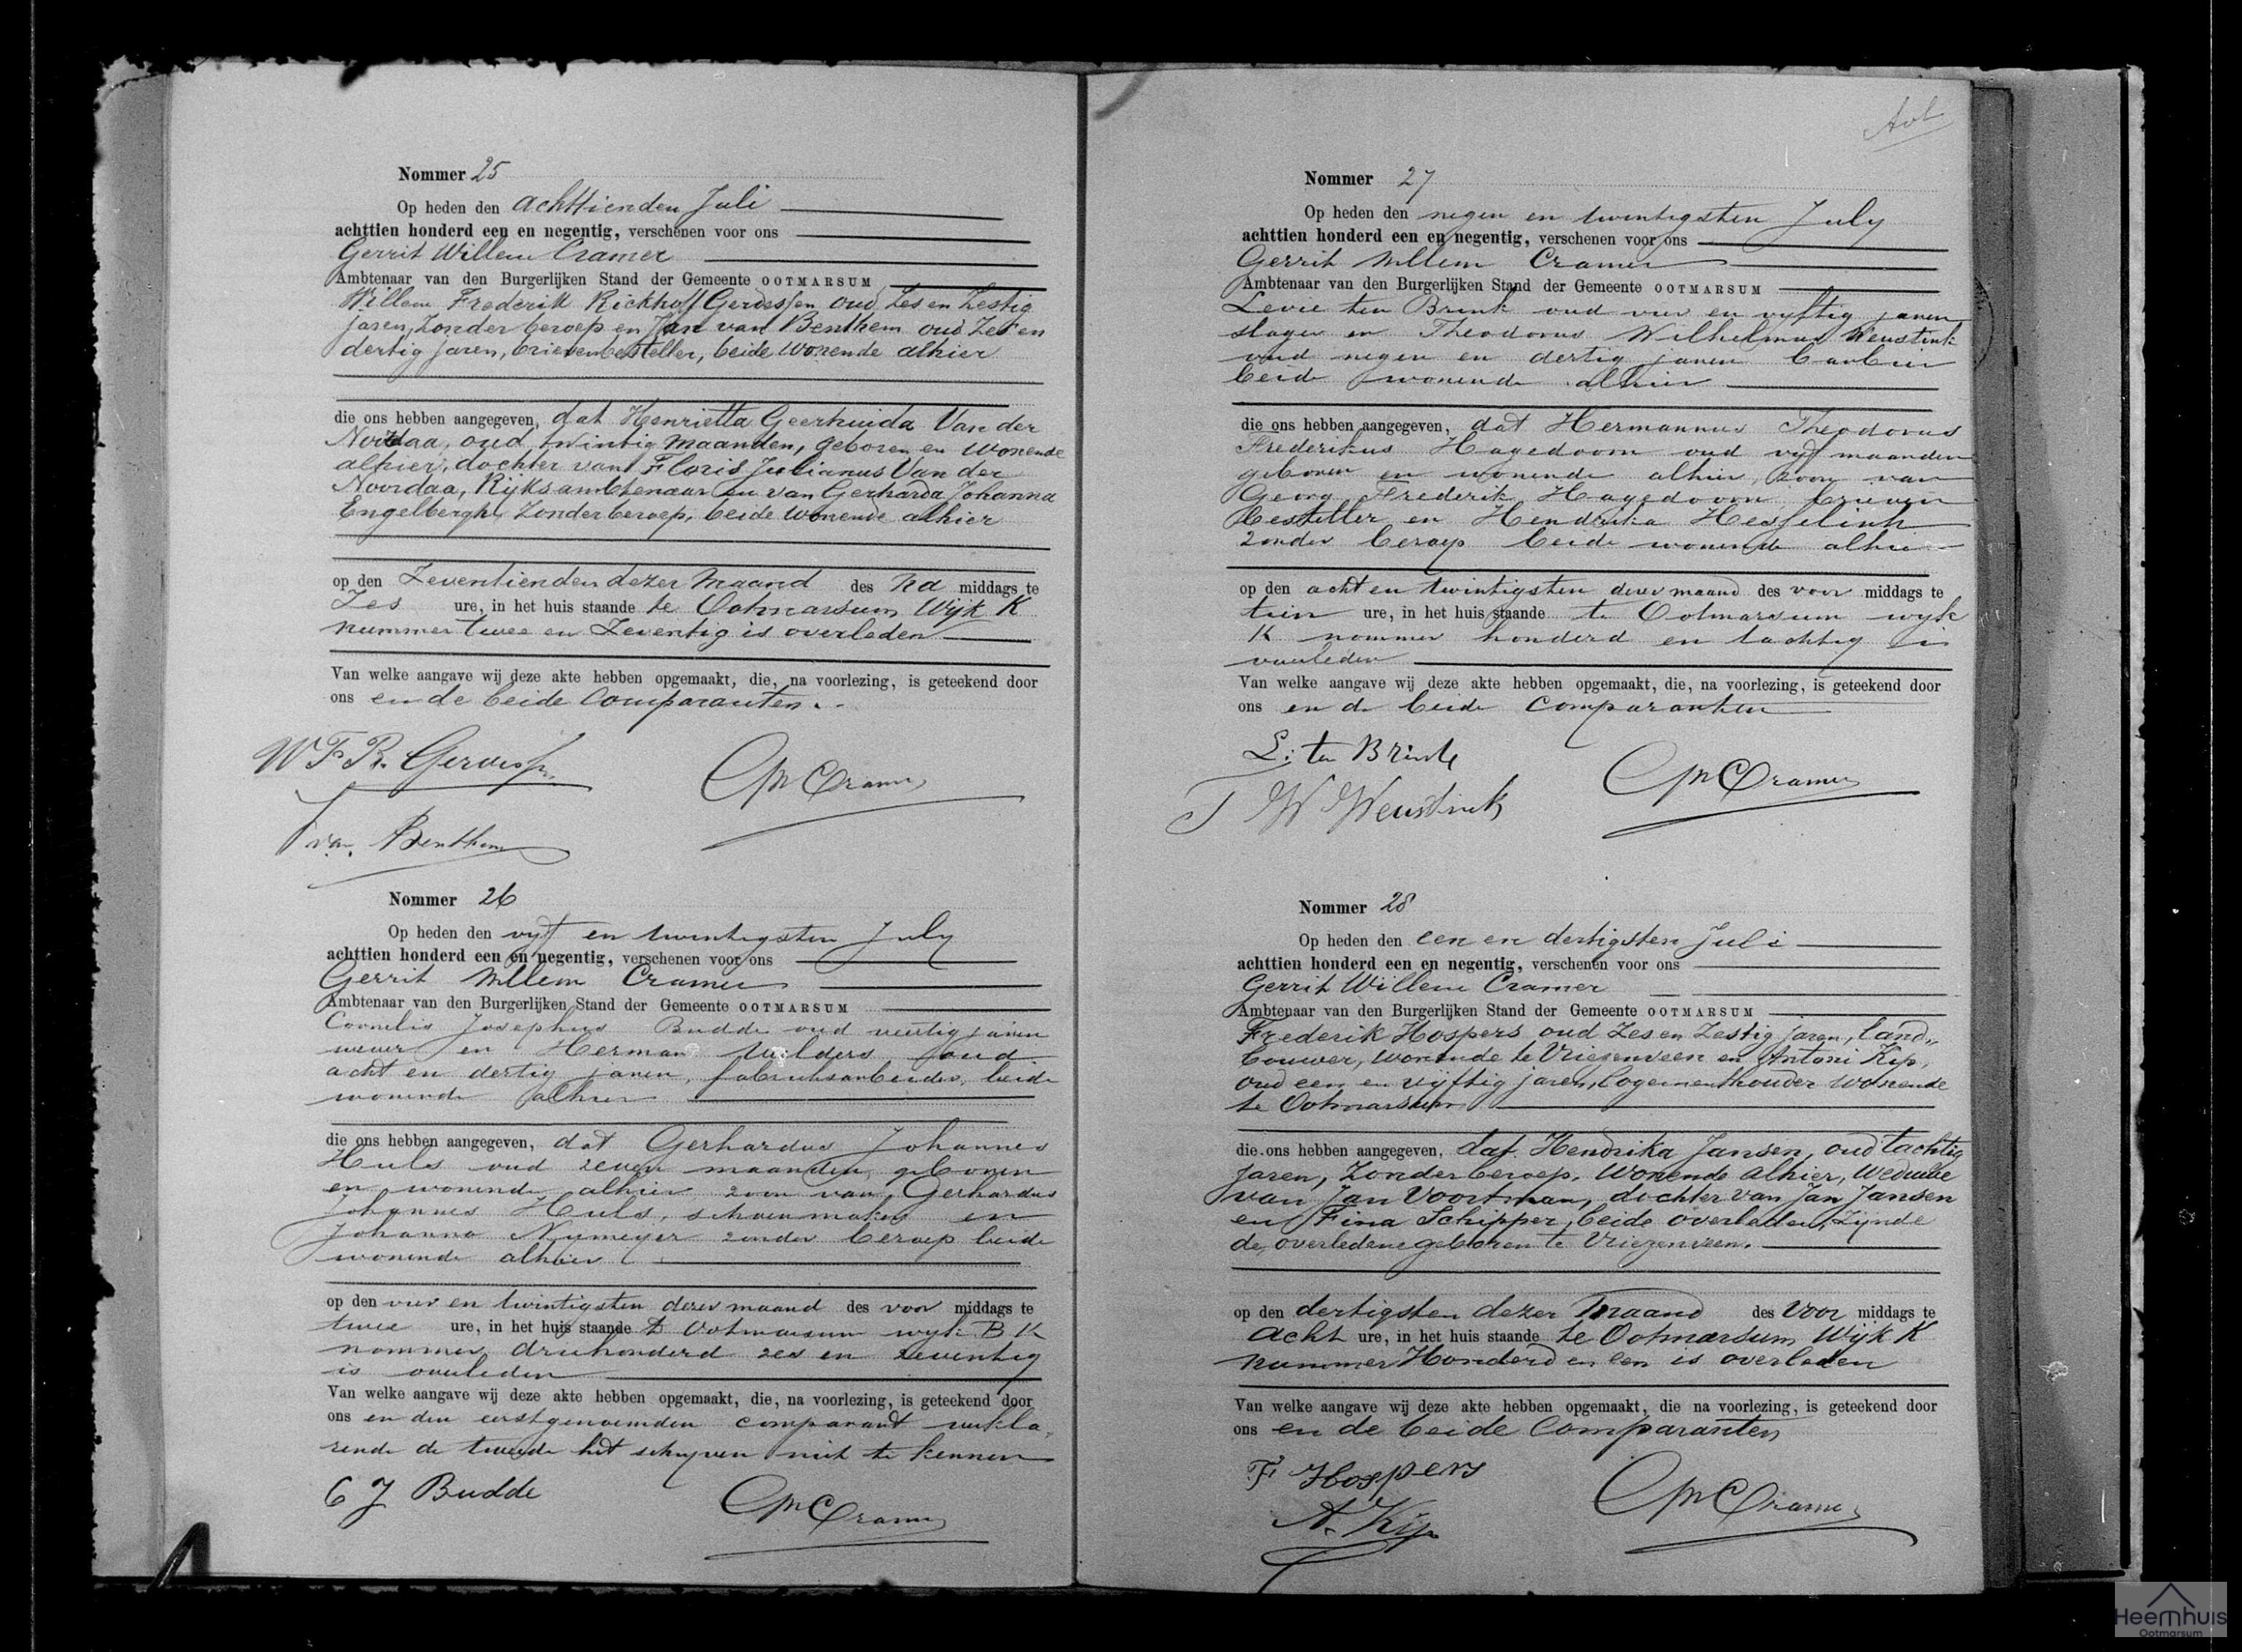 Nommer 25
Op heden den achttienden Juli
achttien honderd een en negentig, verschenen voor ons
Gerrit Willem Cramer
Ambtenaar van den Burgerlijken Stand der Gemeente OOTMARSUM
Willem Frederik Rickhoff Gerdessen oud Zes en Zestig
jaren, Zonder beroep en Jan van Benthem oud Zes en
dertig jaren, brievenbesteller, beide wonende alhier
die ons hebben aangegeven, dat Henrietta Geerhuida Van der
Noordaa, oud twintig maanden, geboren en wonende
alhier, dochter van Floris Julianus Van der
Noordaa, Rijksambtenaar en van Gerharda Johanna
Engelbergh, Zonder beroep, beide wonende alhier
op den Zeventienden dezer maand des na middags te
Zes ure, in het huis staande te Ootmarsum Wijk K
nummer twee en Zeventig is overleden
Van welke aangave wij deze akte hebben opgemaakt, die, na voorlezing, is geteekend door
ons en de beide Comparanten.
W F R. Gerdessen
GW Cramer
J van Benthem
Nommer 26
Op heden den vyf en twintigsten July
achttien honderd een en negentig, verschenen voor ons
Gerrit Willem Cramer
Ambtenaar van den Burgerlijken Stand der Gemeente OOTMARSUM
Cornelis Josephus Budde oud veertig jaren
wever en Herman Mulders oud
acht en dertig jaren, fabrieksarbeider, beide
wonende alhier
die ons hebben aangegeven, dat Gerhardus Johannes
Huls oud zeven maanden, geboren
en wonende alhier zoon van Gerhardus
Johannes Huls, schoenmaker en
Johanna Nymeyer zonder beroep beide
wonende alhier
op den vier en twintigsten dezer maand des voor middags te
twee ure, in het huis staande te Ootmarsum wyk B K
nommer driehonderd zes en zeventig
is overleden
Van welke aangave wij deze akte hebben opgemaakt, die, na voorlezing, is geteekend door
ons en den eerstgenoemden comparant verkla,
rende de tweede het schryven niet te kennen
C J Budde
GW Cramer
Avt
Nommer 27
Op heden den negen en twintigsten July
achttien honderd een en negentig, verschenen voor ons
Gerrit Willem Cramer
Ambtenaar van den Burgerlijken Stand der Gemeente OOTMARSUM
Levie ten Brink oud vier en vyftig jaren
slager en Theodorus Wilhelmus Weustink
oud negen en dertig jaren barbier
beide wonende alhier
die ons hebben aangegeven, dat Hermannus Theodorus
Frederikus Hagedoorn oud vyf maanden
geboren en wonende alhier, zoon van
Georg Frederik Hagedoorn brieven
besteller en Hendrika Hesselink
zonder beroep beide wonende alhier
op den acht en twintigsten dezer maand des voor middags te
tien ure, in het huis staande te Ootmarsum wyk
K nommer honderd en tachtig is
overleden
Van welke aangave wij deze akte hebben opgemaakt, die, na voorlezing, is geteekend door
ons en de beide comparanten
L: ten Brink
GW Cramer
T W Weustink
Nommer 28
Op heden den een en dertigsten Juli
achttien honderd een en negentig, verschenen voor ons
Gerrit Willem Cramer
Ambtenaar van den Burgerlijken Stand der Gemeente OOTMARSUM
Frederik Hospers oud Zes en Zestig jaren, land„
bouwer, wonende te Vriezenveen en Antoni Kip,
oud een en vijftig jaren, logementhouder wonende
te Ootmarsum
die ons hebben aangegeven, dat Hendrika Jansen, oud tachtig
jaren, Zonder beroep, wonende alhier, Weduwe
van Jan Voortman, dochter van Jan Jansen
en Fina Schipper, beide overleden, Zijnde
de overledene geboren te Vriezenveen.
op den dertigsten dezer maand des voor middags te
acht ure, in het huis staande te Ootmarsum Wijk K
nummer Honderd en een is overleden
Van welke aangave wij deze akte hebben opgemaakt, die na voorlezing, is geteekend door
ons en de beide Comparanten
F Hospers
GW Cramer
A. Kip
Heemhuis
Ootmarsum